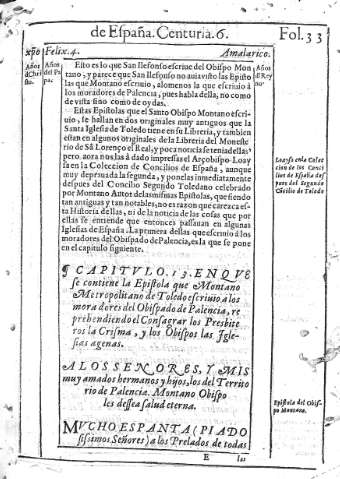 de España. Centuria. 6.
Fol. 33
xp̃o Felix. 4.
Amalarico.
Años
d Chri
sto.
Años
del Pa
pa.
Años
d Rey
no
Esto es lo que San Ilefonso escriue del Obispo Mon
tano, y parece que San Ilefonso no auia visto las Episto
las que Montano escriuio, alomenos la que escriuio à
los moradores de Palencia, pues habla della, no como
de vista sino como de oydas.
Estas Epistolas que el Santo Obispo Montano escri
uio, se hallan en dos originales muy antiguos que la
Santa Iglesia de Toledo tiene en su Libreria, y tambien
estan en algunos originales de la Libreria del Moneste
rio de Sã Lorenço el Real, y poca noticia se tenia dellas,
pero aora nos las à dado impressa el Arçobispo Loay
sa en la Coleccion de Concilios de España, aunque
muy depruada la segunda, y ponelas inmediatamente
despues del Concilio Segundo Toledano celebrado
por Montano Autor de las mismas Epistolas, que siendo
tan antiguas y tan notables, no es razon que carezca es-
ta Historia dellas, ni de la noticia de las cosas que por
ellas se entiende que entonces passauan en algunas
Iglesias de España. La primera dellas que escriuio à los
moradores del Obispado de Palencia, es la que se pone
en el capitulo siguiente.
Loaysa en la Colec
cion de los Conci
lios de España des
pues del Segundo
Cõcilio de Toledo
¶ CAPITVLO. 13. EN QVE
se contiene la Epistola que Montano
Metropolitano de Toledo escriuio à los
moradores del Obispado de Palencia, re
prehendiendo el Consagrar los Presbite
ros la Crisma, y los Obispos las Igle-
sias agenas.
A LOS SEÑORES, Y MIS
muy amados hermanos y hijos, los del Territo
rio de Palencia. Montano Obispo
les dessea salud eterna.
Epistola del Obis-
po Montano.
MVCHO ESPANTA (PIADO
sissimos Señores) a los Prelados de todas
E
las